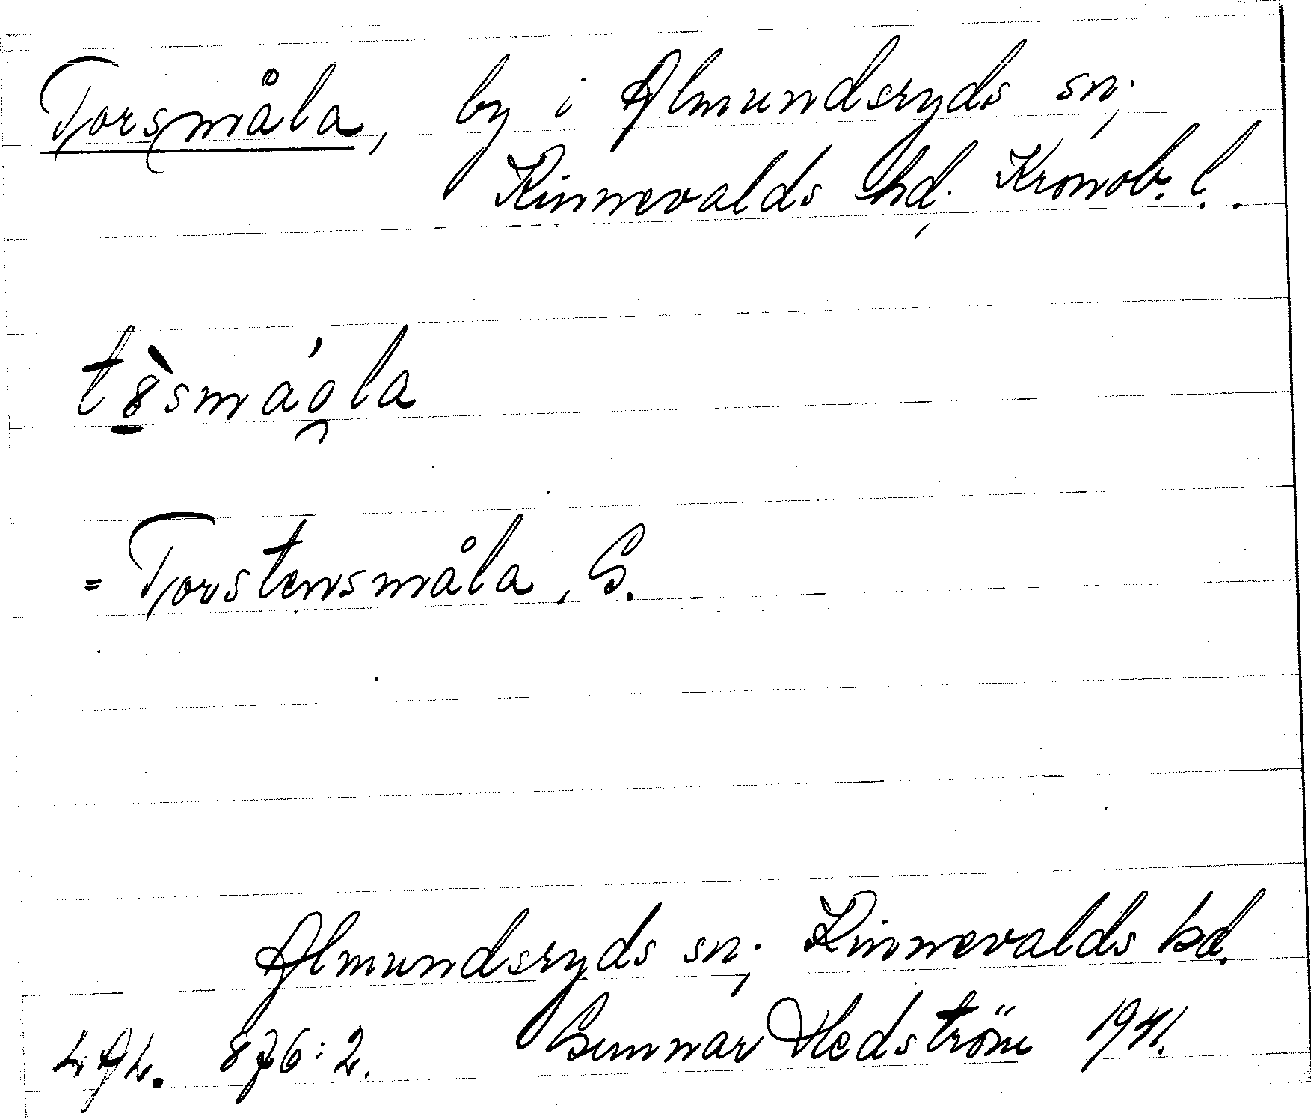 Torsmåla, by i Almundsryds sn,
Kinnevalds hd. Kronob. l.
= Torstensmåla, S.
Almundsryds sn, Kinnevalds hd.
876:2. Gunnar Hedström 1941.